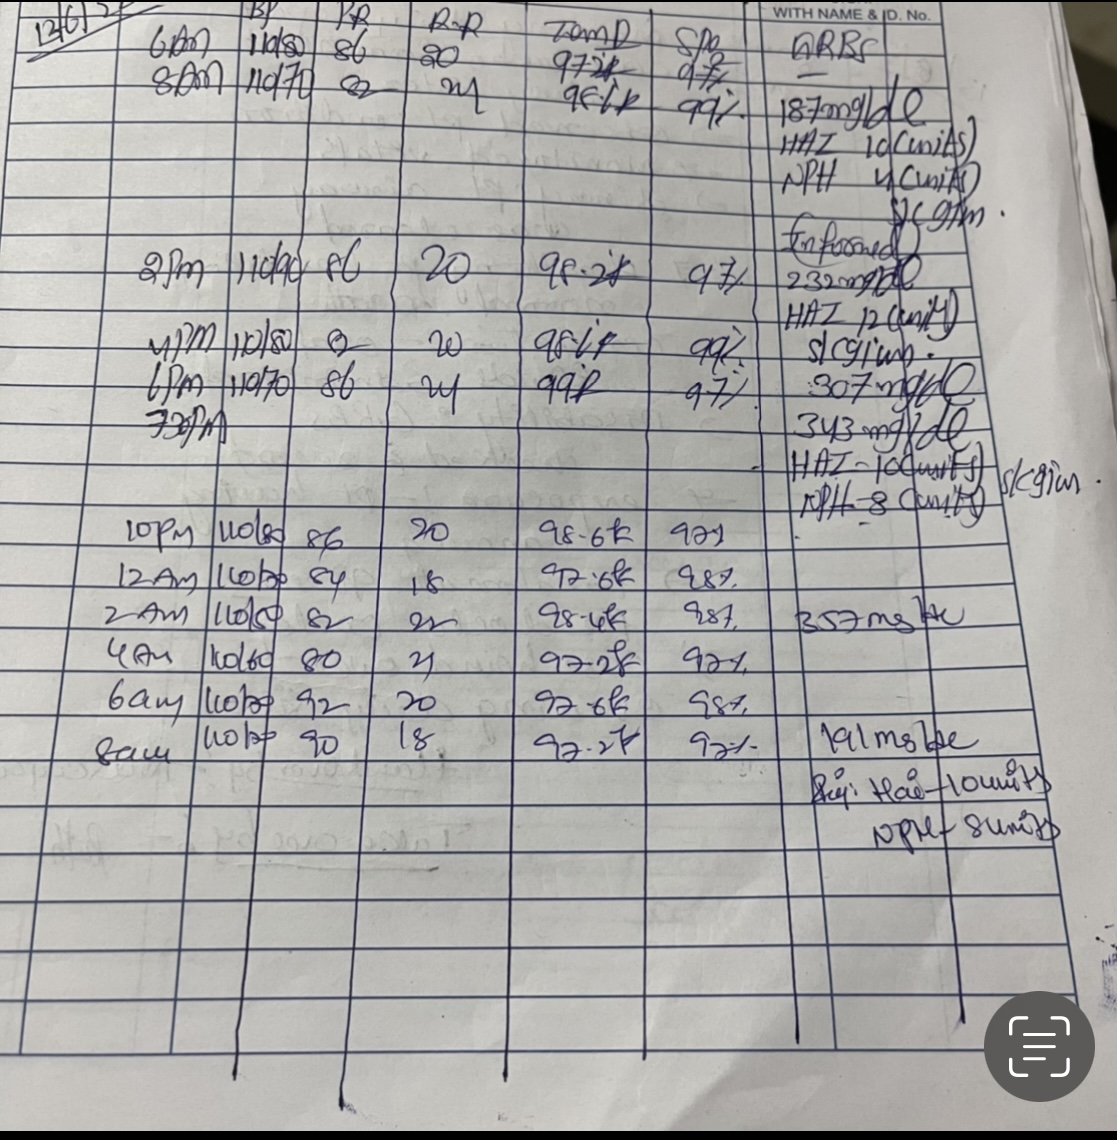 WITH NAME & ID. No.
BP PR R.R Temp SpO2 GRBS
6AM 110/80 86 20 97.2F 97%
8AM 110/70 82 24 98.6F 99% 187mg/dl
HAI 10(units)
NPH 4(units)
S/C given.
(Informed)
2PM 110/90 86 20 98.2F 97% 232mg/dl
HAI 12(units)
4PM 110/80 82 20 98.6F 99% S/C given.
6PM 110/70 86 24 99F 97% 307mg/dl
730PM 343mg/dl
HAI-10(units)
NPH-8(units) S/C given.
10PM 110/80 86 20 98.6F 97%
12AM 110/70 84 18 97.6F 98%
2AM 110/80 82 22 98.4F 98% 357mg/dc
4AM 110/60 80 21 97.2F 97%
6am 110/70 92 20 97.6F 98%
8am 110/70 90 18 97.2F 97% 191mg/dc
Inj: Hai-10units
NPH-8units